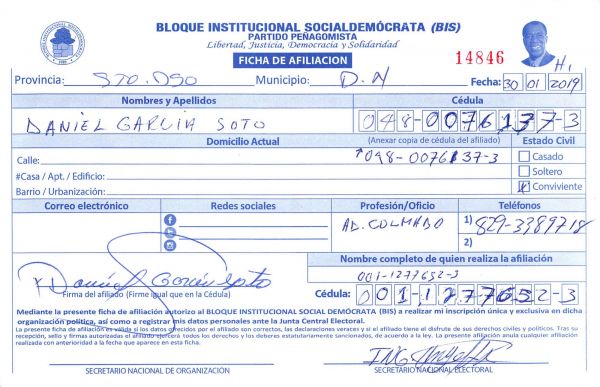 BLOQUE INSTITUCIONAL SOCIALDEMÓCRATA (BIS)
PARTIDO PEÑAGOMISTA
Libertad, Justicia, Democracia y Solidaridad
FICHA DE AFILIACION
14846
Provincia: STO. DGO Municipio: D.N Fecha: 30 01 2019
Nombres y Apellidos Cédula
DANIEL GARCIA SOTO 048-0076137-3
Domicilio Actual (Anexar copia de cédula del afiliado) Estado Civil
Calle: 048-0076137-3 Casado
#Casa / Apt. / Edificio: Soltero
Barrio / Urbanización: Conviviente
Correo electrónico Redes sociales Profesión/Oficio Teléfonos
AD. COLMADO 1) 829-3389718
2)
Nombre completo de quien realiza la afiliación
001-1277652-3
Daniel Garcia Soto
Firma del afiliado (Firme igual que en la Cédula) Cédula: 001-1277652-3
Mediante la presente ficha de afiliación autorizo al BLOQUE INSTITUCIONAL SOCIAL DEMÓCRATA (BIS) a realizar mi inscripción única y exclusiva en dicha
organización política, así como a registrar mis datos personales ante la Junta Central Electoral.
La presente ficha de afiliación es válida si los datos ofrecidos por el afiliado son correctos, las declaraciones veraces y si el afiliado tiene el disfrute de sus derechos civiles y políticos. Tras su
recepción, sello y firmas autorizadas el afiliado ejercerá todos los derechos y los deberes estatutariamente consagrados, de acuerdo a la ley. La presente afiliación anula cualquier afiliación
realizada con anterioridad a la fecha que aparece en esta ficha.
ING.
SECRETARIO NACIONAL DE ORGANIZACIÓN SECRETARIO NACIONAL ELECTORAL